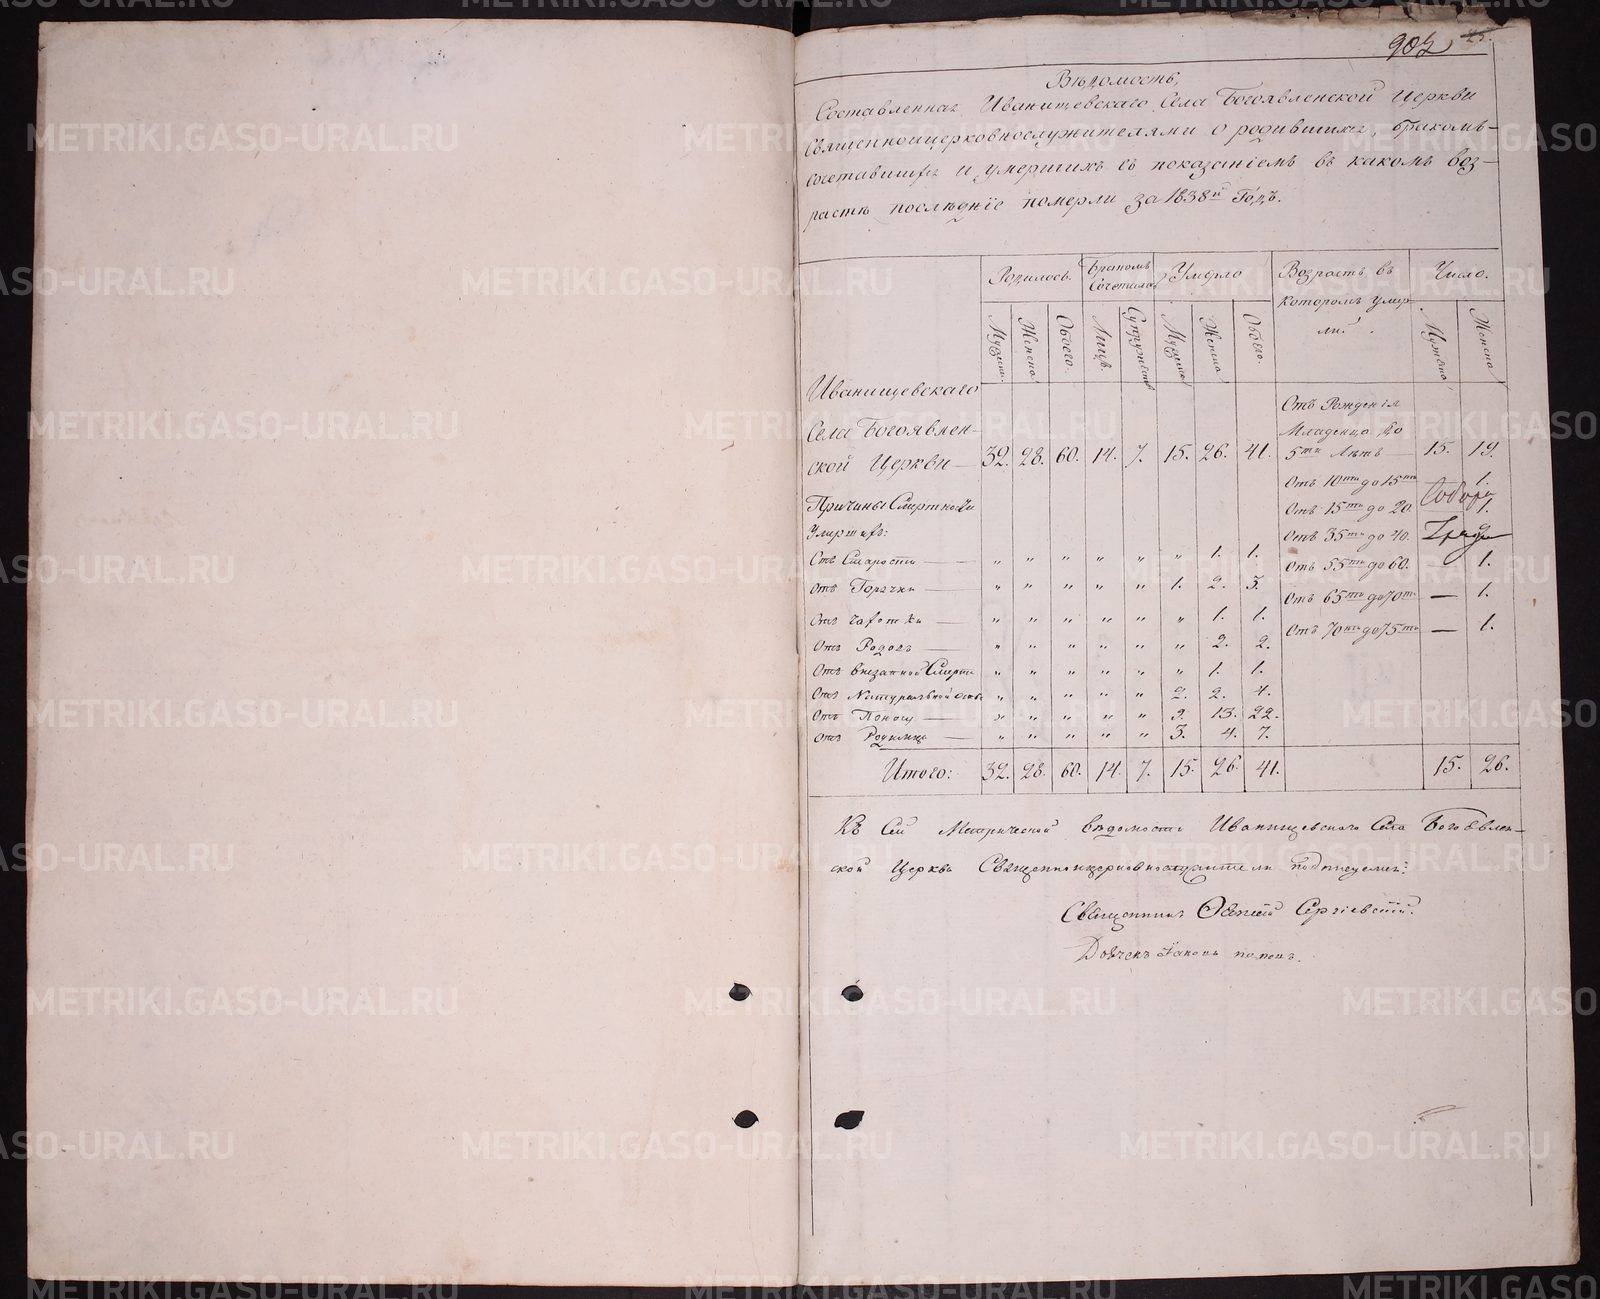 902
25.
Вѣдомость,
Составленная Иванищевскаго Села Богоявленской Церкви
Священноцерковнослужителями о родившихся, бракомъ-
сочетавшихся и умершихъ съ показанiемъ въ какомъ воз-
растѣ послѣднiе померли за 1838й Годъ.
Родилось. Бракомъ Сочетало Умерло Возрастъ въ которомъ умер- ли. Число.
Мужеска Женска Обоего. Лицъ. Супружествъ Мужеска Женска Обоего. Мужеска Женска
Иванищевскаго
Села Богоявлен-
ской Церкви — 32. 28. 60. 14. 7. 15. 26. 41.
Отъ Рожденiя
Младенца до
5ти Лѣтъ — 15. 19.
Отъ 10ти до 15ти 1.
Отъ 15ти до 20. 1.
Отъ 35ти до 40.
Отъ 55ти до 60. — 1.
Отъ 65ти до 70ти — 1.
Отъ 70ти до 75ти — 1.
Причины Смертности
Умершихъ:
Отъ Старости — „ „ „ „ „ „ 1. 1.
Отъ Горячки — „ „ „ „ „ 1. 2. 3.
Отъ Чахотки — „ „ „ „ „ „ 1. 1.
Отъ Родовъ — „ „ „ „ „ „ 2. 2.
Отъ внезапной Смерти „ „ „ „ „ „ 1. 1.
Отъ Натуральной „ „ „ „ „ 2. 2. 4.
Отъ Поносу — „ „ „ „ „ 9. 13. 22.
Отъ Родимца — „ „ „ „ „ 3. 4. 7.
Итого: 32. 28. 60. 14. 7. 15. 26. 41. 15. 26.
Къ Сей Метрической вѣдомости Иванищевскаго Села Богоявлен-
ской Церкви Священноцерковнослужители подписуемся:
Священникъ Сергiевскiй.
Дьячекъ Iаковъ Поповъ.
METRIKI.GASO-URAL.RU